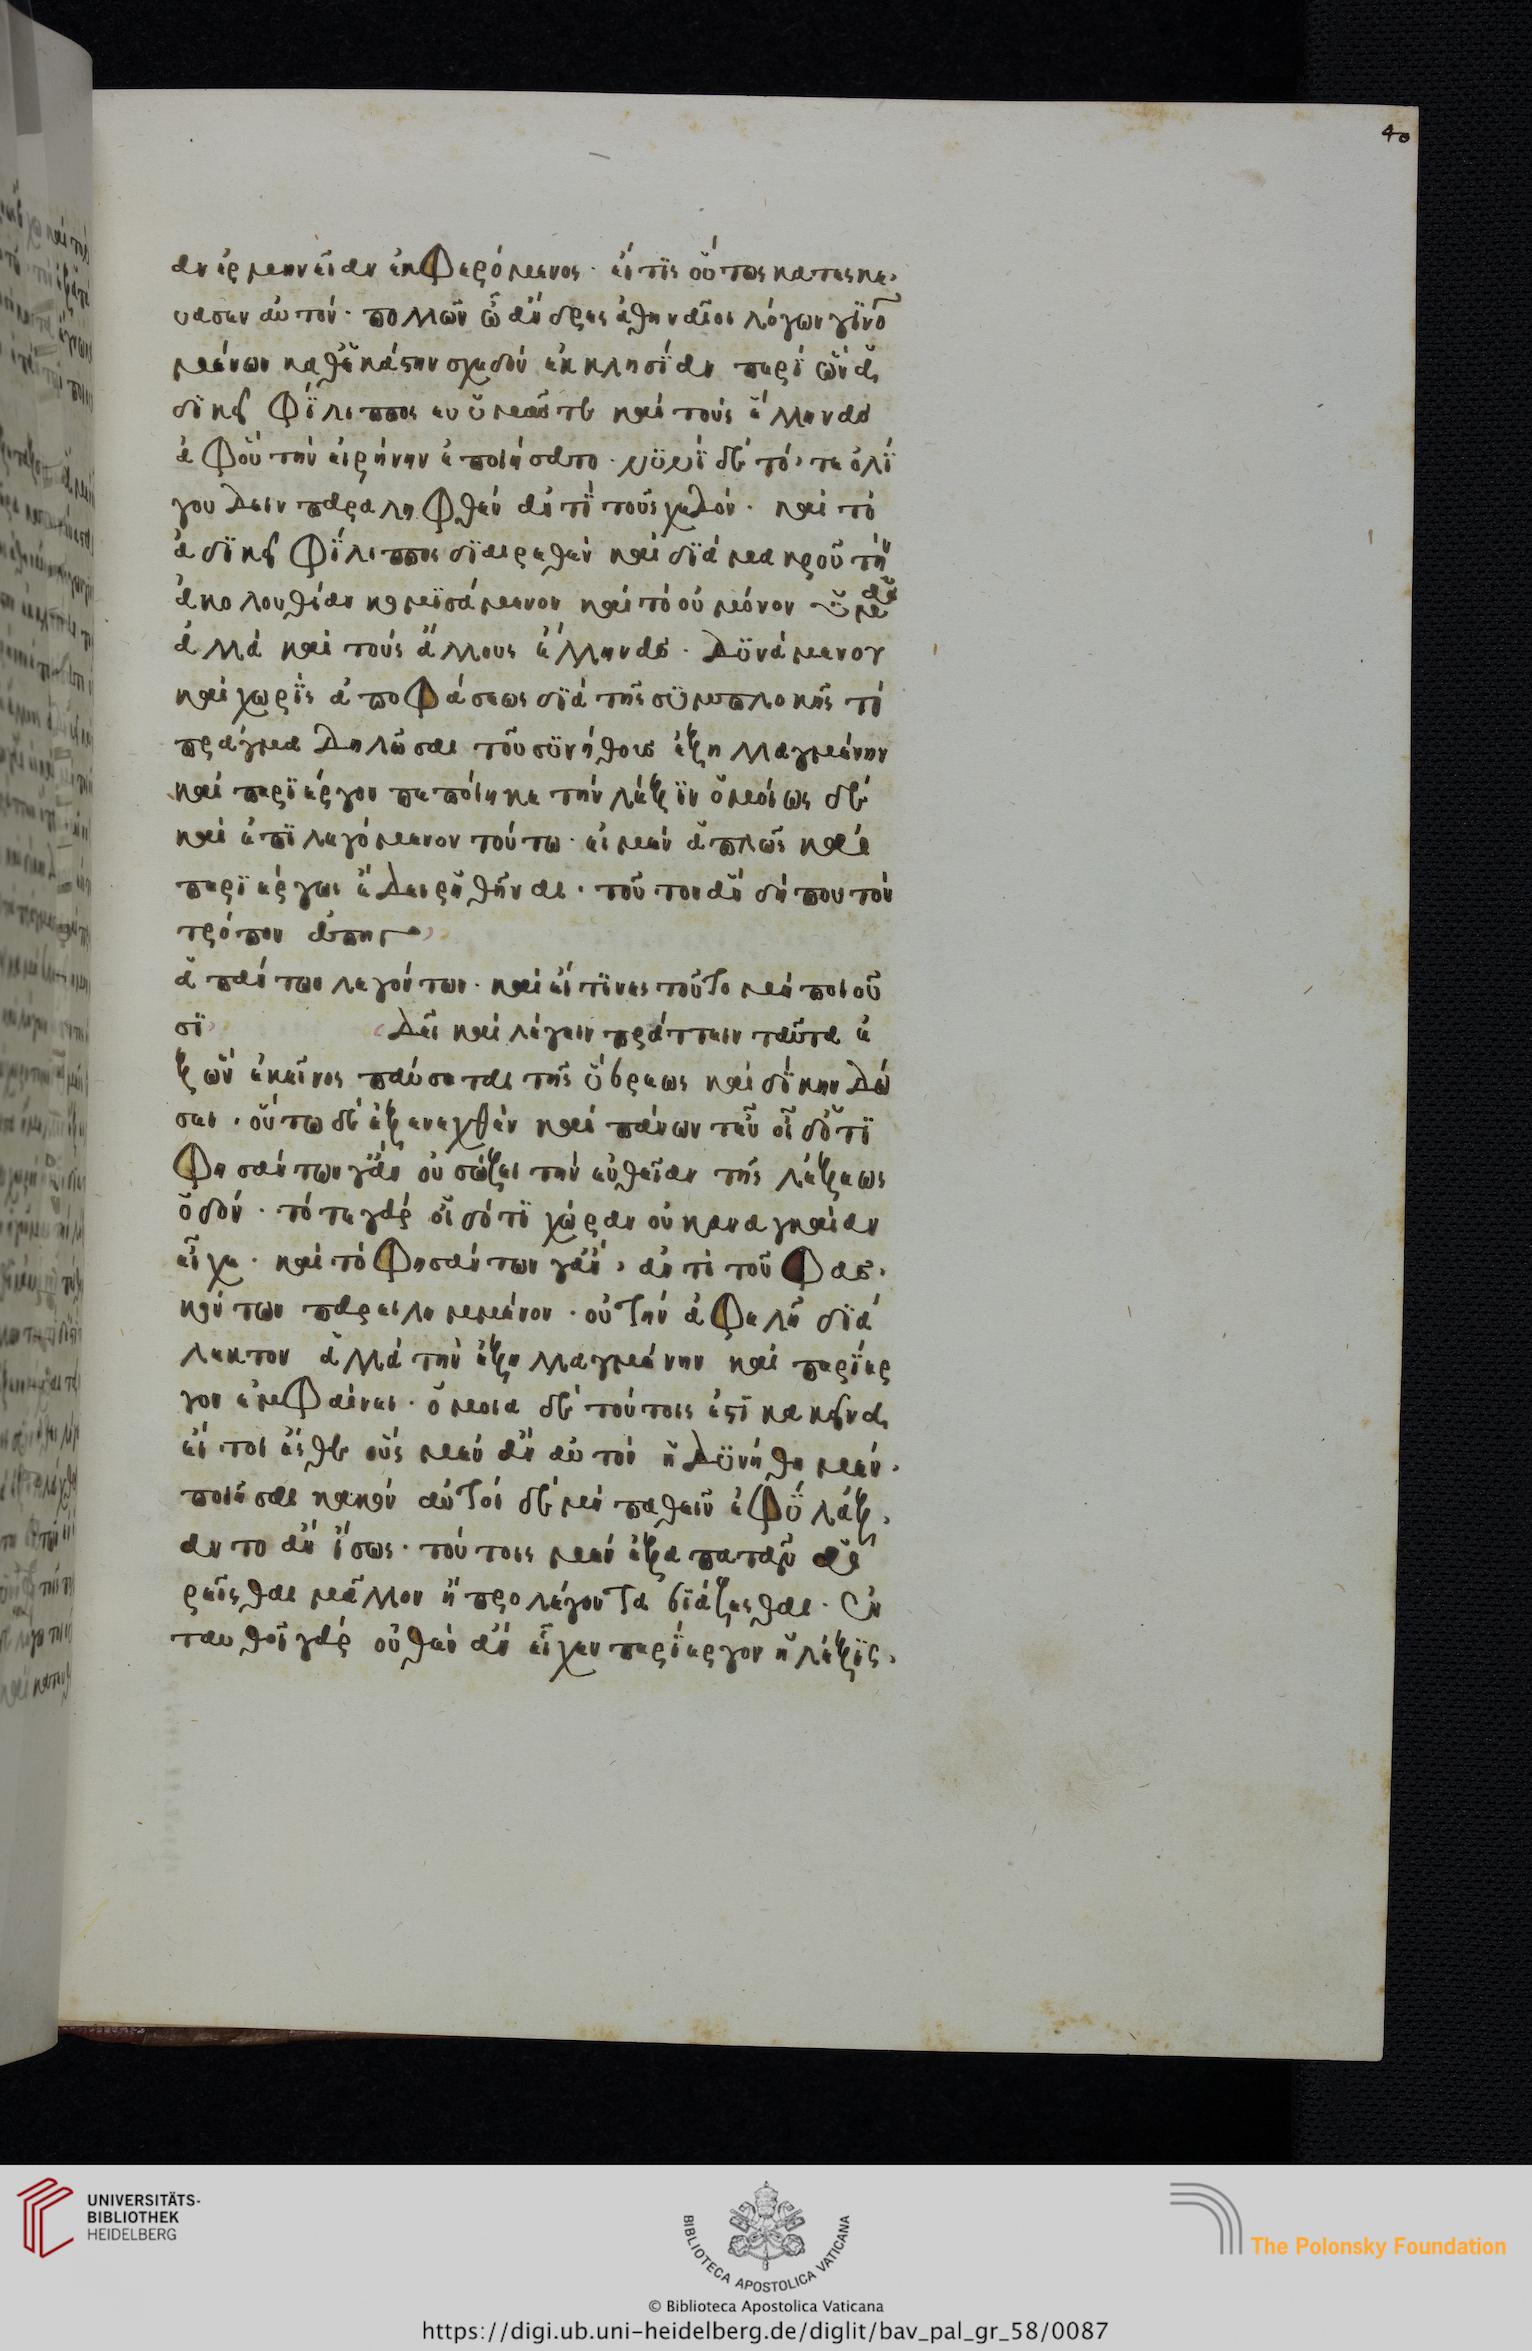 40
αν ἑρμηνείαν ἐκφερόμενος· εἴ τϊς οὕτως κατεσκε,
ύασεν αὐτόν· πολλῶν ὦ ἄνδρες ἀθηναῖοι λόγων γϊνο
μένων καθἑκάστην σχεδόν ἐκκλησΐαν περΐ ὧν ἀ
δϊκεῖ Φΐλιππος εὐ ὑμᾶς τε καὶ τοὺς ἕλληνας
ἀφοῦ τὴν εἰρήνην ἐποιήσατο· νϋνΐ δὲ τό, τε ὀλΐ
γου δεῖν παραληφθέν ἀντΐ τοῦ σχεδόν· καὶ τὸ
ἀδϊκεῖ Φΐλιππος δϊαιρεθὲν καὶ δϊὰ μακροῦ τὴν
ἀκολουθίαν κομϊσάμενον καὶ τὸ οὐ μόνον ὑμᾶς
ἀλλὰ καὶ τοὺς ἄλλους ἕλληνας· δϋνάμενον
καὶ χωρΐς ἀποφάσεως δϊὰ τῆς σϋμπλοκῆς τὸ
πράγμα δηλῶσαι τοῦ σϋνήθους ἐξηλλαγμένην
καὶ περϊέργον πεποίηκε τὴν λέξϊν ὁμοίως δὲ
καὶ ἐπϊλεγόμενον τούτω· εἰ μὲν ἁπλῶς καὶ
περϊέργως ἔδει ῥηθῆναι· τοῦτον ἂν δή που τὸν
τρόπον ἀπηγ
ἁπάντων λεγόντων· καὶ εἴ τϊνες τοῦτο μὴ ποιοῦ
σΐ δεῖ καὶ λέγειν πράττειν ταῦτα ἐ
ξ ὧν ἐκεῖνος παύσεται τῆς ὕβρεως καὶ δΐκην δώ
σει· οὕτω δὲ ἐξενεχθὲν καὶ πάνων τεῦ οἶδ ὅτϊ
Φησάντων γἂν οὐ σώζει τὴν εὐθεῖαν τῆς λέξεως
ὁδόν· τό τε γὰρ οἶδ ὅτϊ χώραν οὐκ ἀναγκαίαν
εἶχε· καὶ τὸ Φησάντων γἂν, ἀντὶ τοῦ Φασ,
κόντων παρειλημμένον· οὐ τὴν ἀφελῆ δϊά
λεκτον ἀλλὰ τὴν ἐξηλλαγμένην καὶ περΐερ
γον ἐμφαίνει· ὅμοια δὲ τούτοις ἐστΐ κακεῖνα,
εἴτοι ἔσθε οὓς μὲν ἂν αὐτὸν ἠδϋνήθη μὲν,
ποιῆσαι κακόν αὐτοὶ δὲ μὴ παθεῖν ἐφϋλάξ,
αντο ἂν ἴσως· τούτοις μὲν ἐξαπατᾶν αἱ
ρεῖσθαι μᾶλλον ἢ προλέγοντα βϊάζεσθαι· ἐν
ταυθοῖ γὰρ οὐθὲν ἂν εἶχεν περΐεργον ἡ λέξϊς,
UNIVERSITÄTS-
BIBLIOTHEK
HEIDELBERG
BIBLIOTECA APOSTOLICA VATICANA
The Polonsky Foundation
© Biblioteca Apostolica Vaticana
https://digi.ub.uni-heidelberg.de/diglit/bav_pal_gr_58/0087